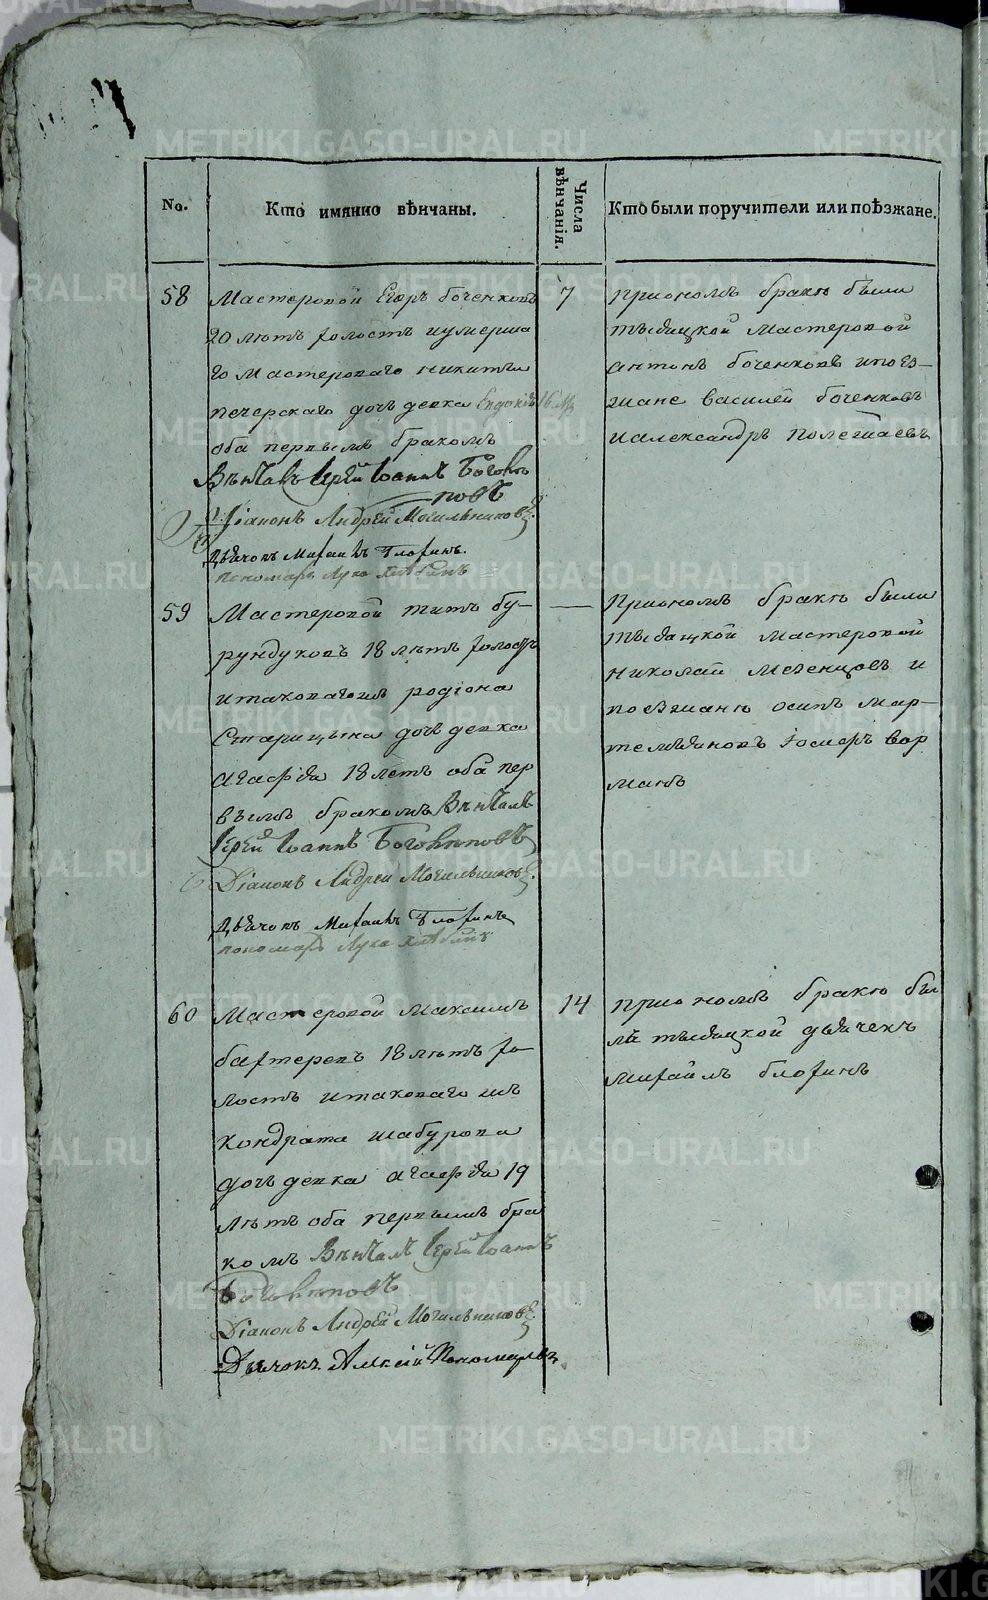 No.
Кто имянно вѣнчаны.
Числа вѣнчанія.
Кто были поручители или поѣзжане.
58
Мастеровой Егоръ боченковъ
20 лѣтъ холостъ иумерша
го мастероваго никиты
печерскаго дочь девка Евдокія 16 лѣ
оба первымъ бракомъ
Вѣнчалъ Іерей Іоаннъ Богоявле
новъ
Діаконъ Андрей Могильниковъ
Дьячокъ Михаилъ Блохинъ.
пономарь Лука
7
Приономъ бракѣ были
мастеровой
антонъ боченковъ ипоез-
жане василей боченковъ
иалександръ полежаевъ
59
Мастеровой титъ бу-
рундуковъ 18 лѣтъ холостъ
итаковагожъ родіона
Старицына дочь девка
агафія 18 летъ оба пер
вымъ бракомъ Вѣнчалъ
Іерей Іоаннъ
Діаконъ Андрей Могильниковъ.
Дьячокъ Михаилъ Блохинъ
пономарь Лука
—
Приономъ бракѣ были
мастеровой
николай мезенцовъ и
поезжанѣ осипъ мар-
60
Мастеровой Максимъ
бахтеревъ 18 лѣтъ хо-
лостъ итаковагожъ
кондрата шабурова
дочь девка агафія 19
лѣтъ оба первымъ бра
комъ Вѣнчалъ Іерей Іоаннъ
Діаконъ Андрей Могильниковъ
Дьячокъ Алексій Пономаревъ
14
Приономъ бракѣ бы
лъ дьячекъ
михаилъ блохинъ
METRIKI.GASO-URAL.RU